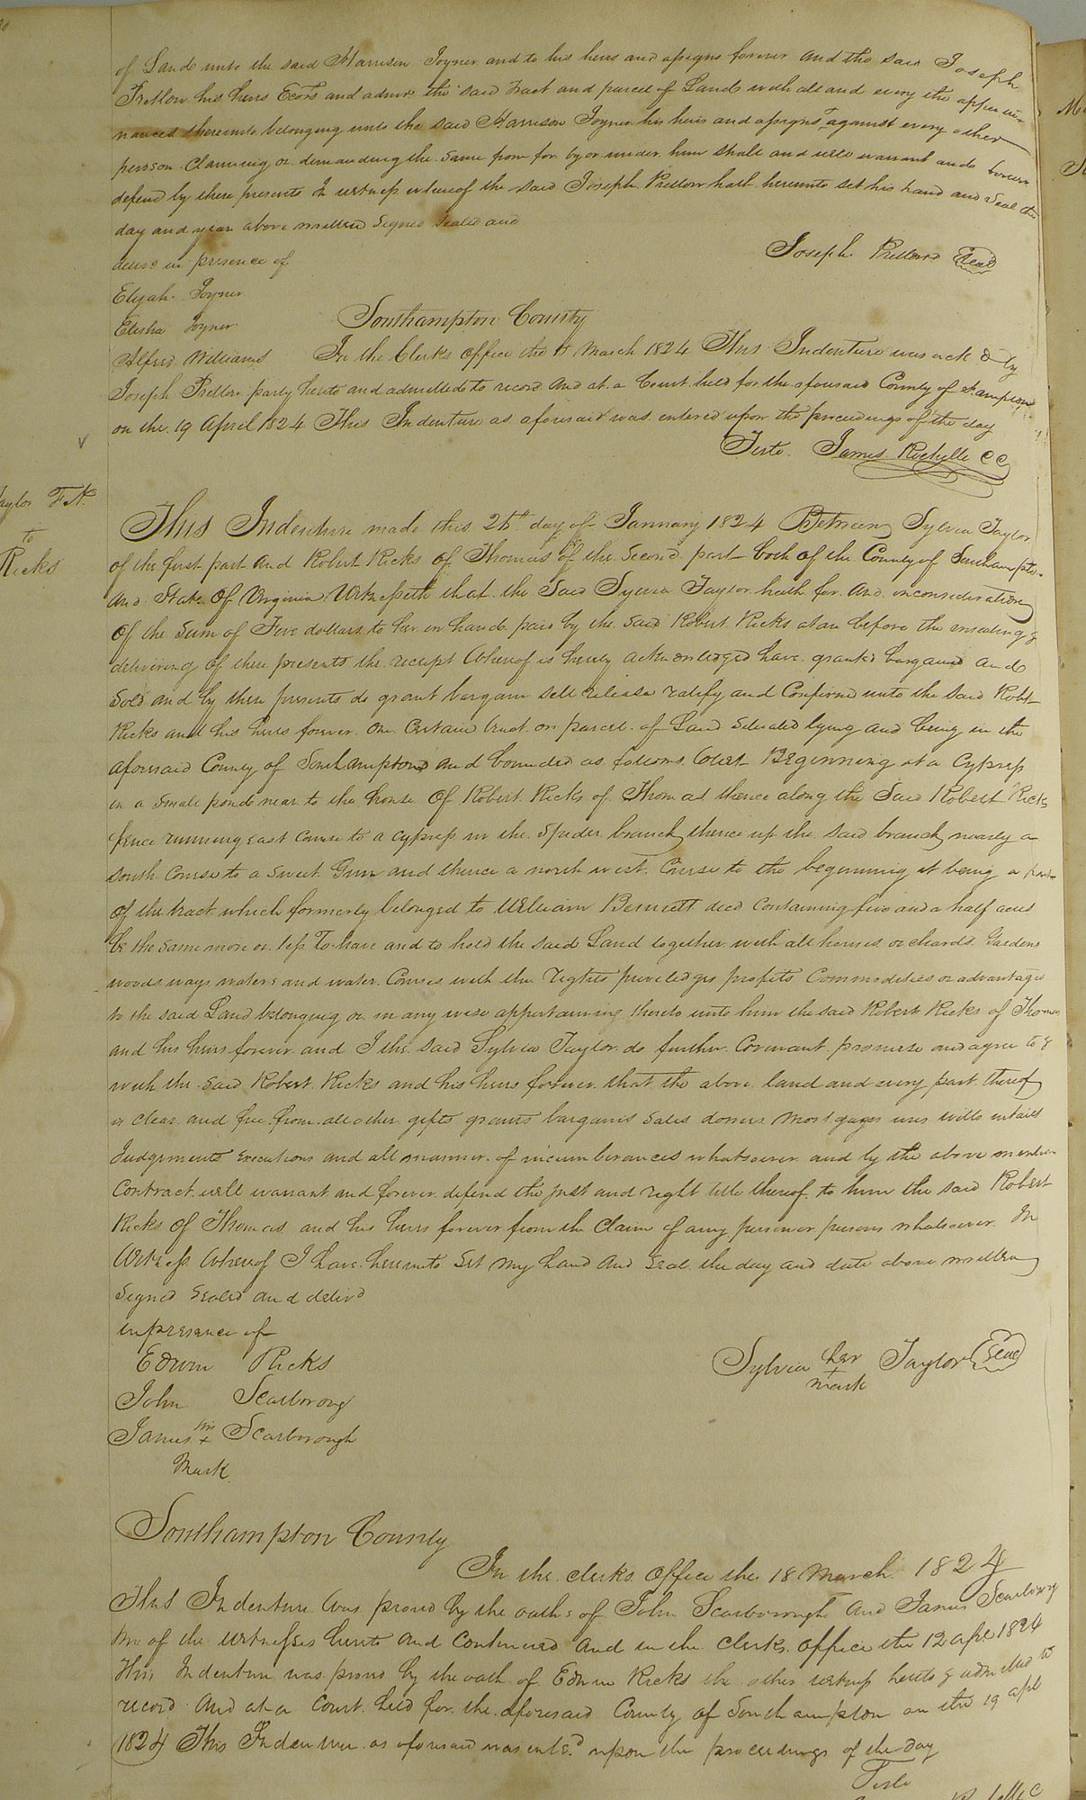 of Land unto the said Harrison Joyner and to his heirs and assigns forever and the said Joseph
Pretlow his heirs Exors and admrs the said tract and parcel of Land with all and every the appurte-
nances thereunto belonging unto the said Harrison Joyner his heirs and assigns against every other
person Claiming or demanding the same from for by or under him shall and will warrant and forever
defend by these presents In witness whereof the said Joseph Pretlow hath hereunto set his hand and Seal the
day and year above written Signed Sealed and
in presence of
Joseph Pretlow Seal
Elijah Joyner
Elisha Joyner
Southampton County
Alfred Williams In the Clerks Office the March 1824 This Indenture was ack d by
Joseph Pretlow party hereto and admitted to record and at a Court held for the aforesaid County of
on the 19 April 1824 This Indenture as aforesaid was entered upon the proceedings of the day
Teste. James Rochelle CC
Taylor
to
Ricks
This Indenture made this 26th day of January 1824 Between Sylvia Taylor
of the first part and Robert Ricks of Thomas of the Second part both of the County of Southampton
and State of Virginia Witnesseth that the Said Sylvia Taylor hath for and inconsideration
Of the Sum of Five dollars to her in hand paid by the Said Robert Ricks at or before the ensealing &
delivering of these presents the receipt Whereof is hereby acknowledged have granted bargained and
Sold and by these presents do grant bargain sell release ratify and Confirm unto the said Robt
Ricks and his heirs forever One Certain tract or parcel of Land Situated lying and being in the
aforesaid County of Southampton and bounded as follows Viz Beginning at a Cypress
in a small pond near to the house Of Robert Ricks of Thomas thence along the Said Robert Ricks
fence running east Course to a cypress in the Spider branch thence up the said branch nearly a
South Course to a Sweet Gum and thence a north west Course to the beginning it being a part
Of the tract which formerly belonged to William Bennett decd Containing five and a half acres
be the same more or less To have and to hold the said Land together with all houses orchards Gardens
woods ways waters and water Courses with the rights priveledges profits Commodities or advantages
to the said Land belonging or in any wise appertaining thereto unto him the said Robert Ricks of Thomas
and his heirs forever and I the said Sylvia Taylor do further Covenant promise and agree to &
with the said Robert Ricks and his heirs forever that the above land and every part thereof
is clear and free from all other gifts grants bargains Sales dowers Mortgages uses wills entails
Judgements Executions and all manner of incumberances whatsoever and by the above mention
Contract will warrant and forever defend the just and right title thereof to him the said Robert
Ricks of Thomas and his heirs forever from the Claim of any person or persons whatsoever In
Witness Whereof I have hereunto Set my hand and Seal the day and date above written
Signed Sealed and delivd
in presence of
Edwin Ricks
Sylvia her Taylor Seal
+
mark
John Scarboroug
James his Scarborough
+
Mark
Southampton County
In the clerks Office the 18 March 1824
This Indenture Was proved by the oaths of John Scarborough And James Scarborough
two of the witnesses hereto and Continued and in the Clerks office the 12 apl 1824
This Indenture was proved by the oath of Edwin Ricks the other witness hereto & admitted to
record And at a Court held for the aforesaid County of Southampton on the 19 apl
1824 This Indenture as aforesaid was entd upon the proceedings of the day
Teste